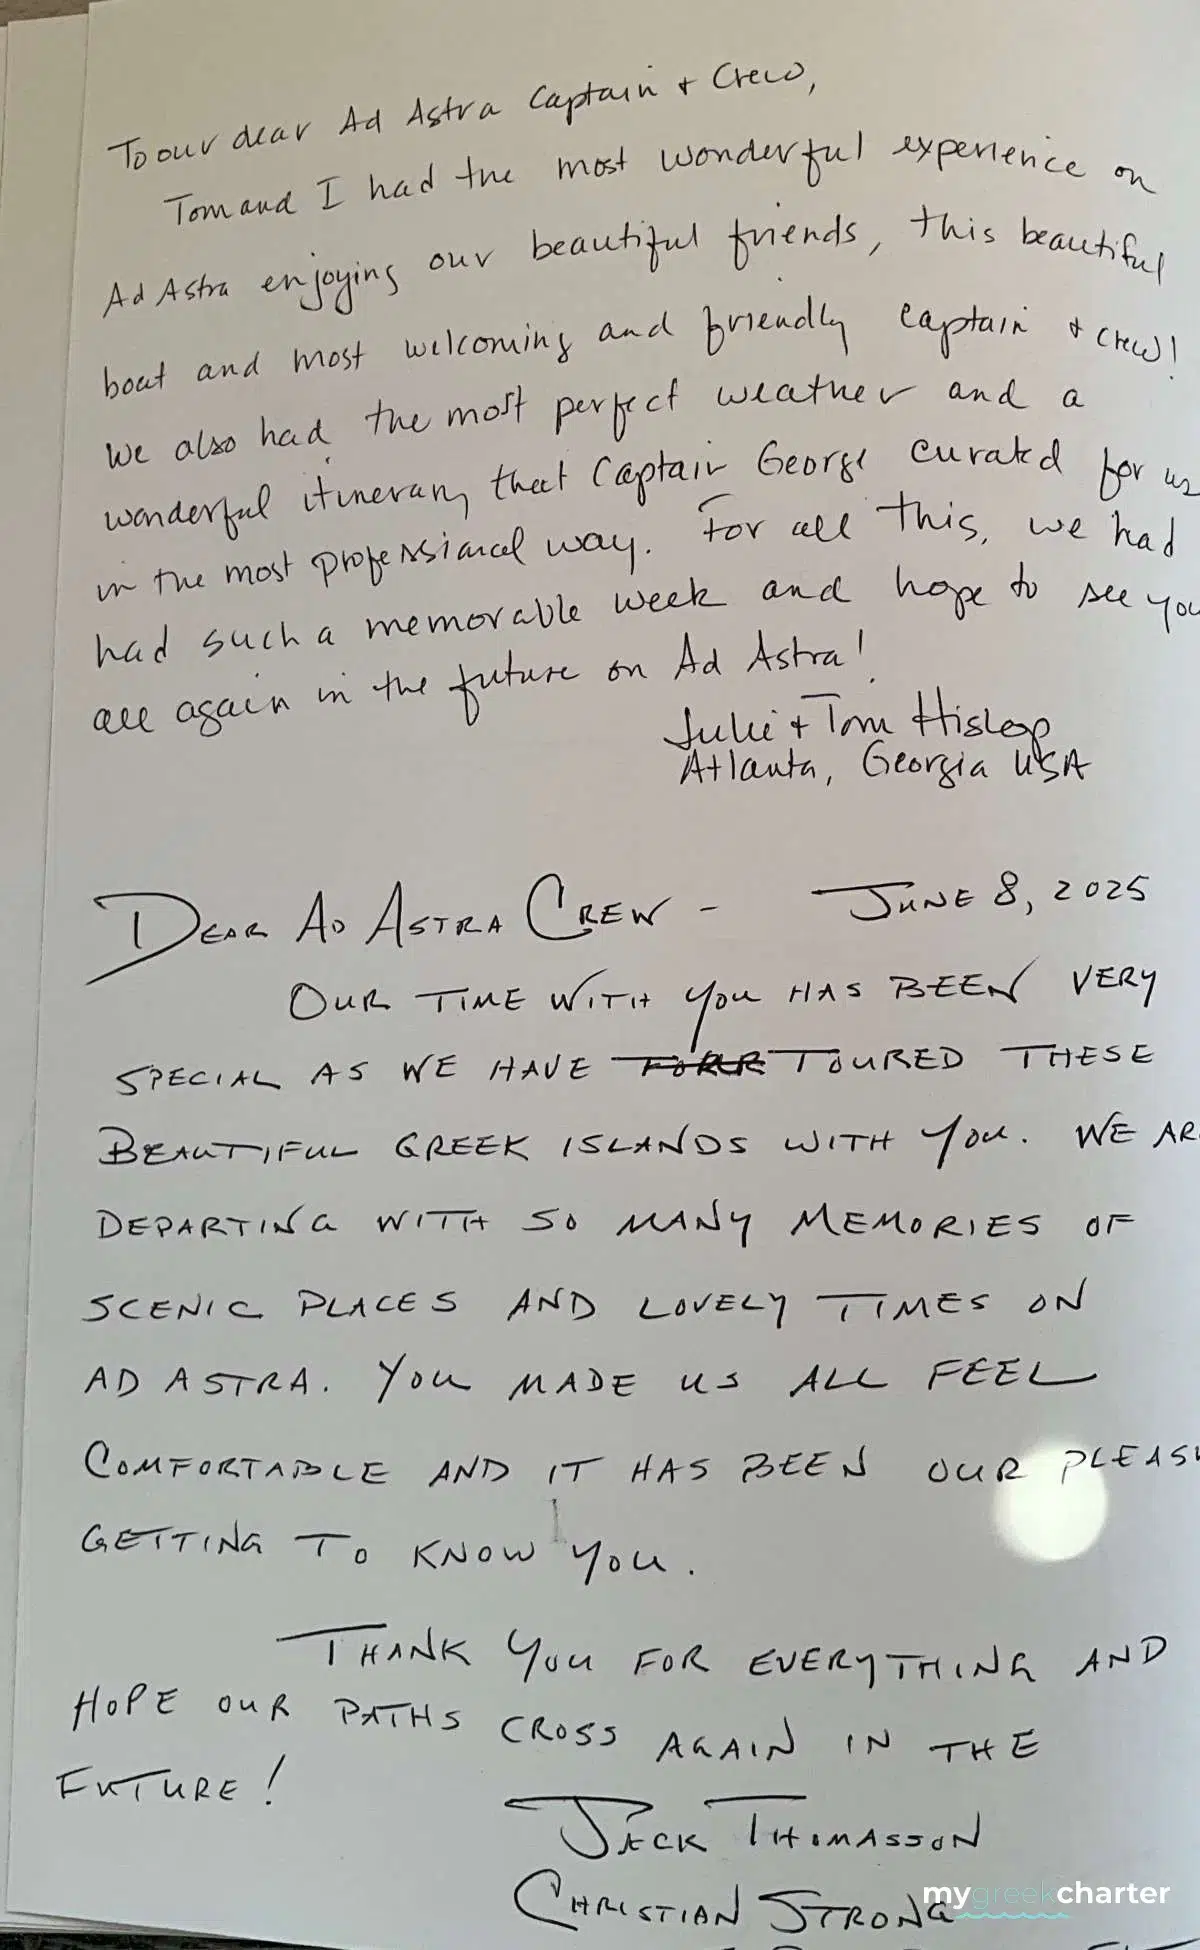 To our dear Ad Astra Captain + Crew,
Tom and I had the most wonderful experience on
Ad Astra enjoying our beautiful friends, this beautiful
boat and most welcoming and friendly captain + crew!
We also had the most perfect weather and a
wonderful itinerary that Captain George curated for us
in the most professional way. For all this, we had
had such a memorable week and hope to see you
all again in the future on Ad Astra!
Julie + Tom Hislop
Atlanta, Georgia USA
DEAR AD ASTRA CREW - JUNE 8, 2025
OUR TIME WITH YOU HAS BEEN VERY
SPECIAL AS WE HAVE TOURED THESE
BEAUTIFUL GREEK ISLANDS WITH YOU. WE AR
DEPARTING WITH SO MANY MEMORIES OF
SCENIC PLACES AND LOVELY TIMES ON
AD ASTRA. YOU MADE US ALL FEEL
COMFORTABLE AND IT HAS BEEN OUR PLEASU
GETTING TO KNOW YOU.
THANK YOU FOR EVERYTHING AND
HOPE OUR PATHS CROSS AGAIN IN THE
FUTURE!
JACK THOMASSON
CHRISTIAN STRONG
mygreekcharter